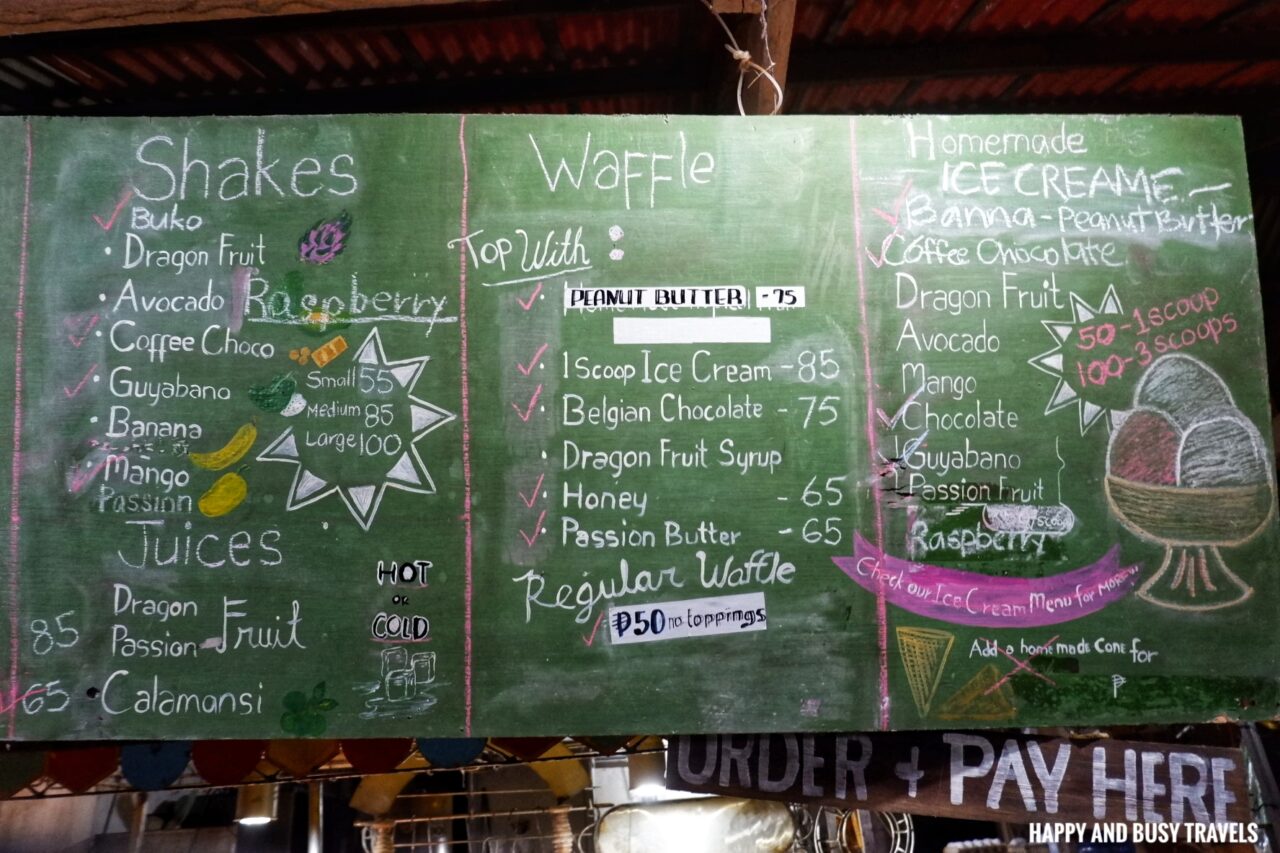 Shakes
Buko
Dragon Fruit
Avocado Raspberry
Coffee Choco
Guyabano
Banana
Mango
Passinn
Small 55
Medium 85
Large 100
Juices
85 Dragon
Passion Fruit
65 Calamansi
HOT
or
COLD
Waffle
Top With :
PEANUT BUTTER - 75
1 Scoop Ice Cream - 85
Belgian Chocolate - 75
Dragon Fruit Syrup
Honey - 65
Passion Butter - 65
Regular Waffle
₱50 no toppings
Homemade
ICE CREAME
Banna - Peanut Butter
Coffee Chocolate
Dragon Fruit
Avocado
Mango
Chocolate
Guyabano
Passion Fruit
Raspberry
50 - 1 scoop
100 - 3 scoops
Check our Ice Cream Menu for MORE...
Add a homemade Cone for
₱
ORDER + PAY HERE
HAPPY AND BUSY TRAVELS